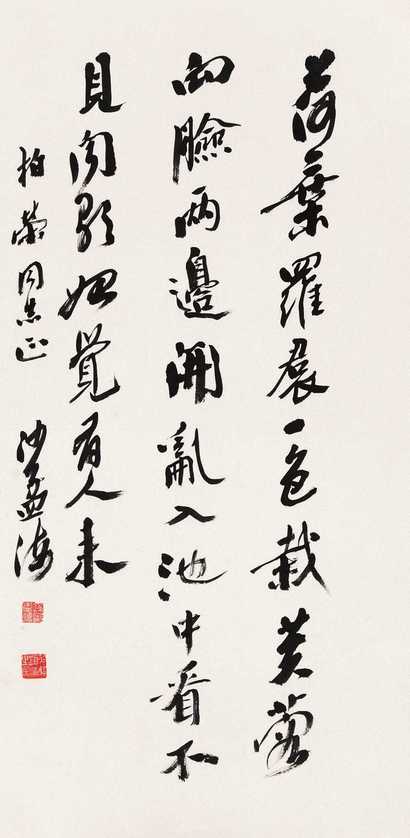 荷葉羅裠一色裁芙蓉
向臉兩邊開亂入池中看不
見聞歌始覺有人来
柏榮同志正 沙孟海